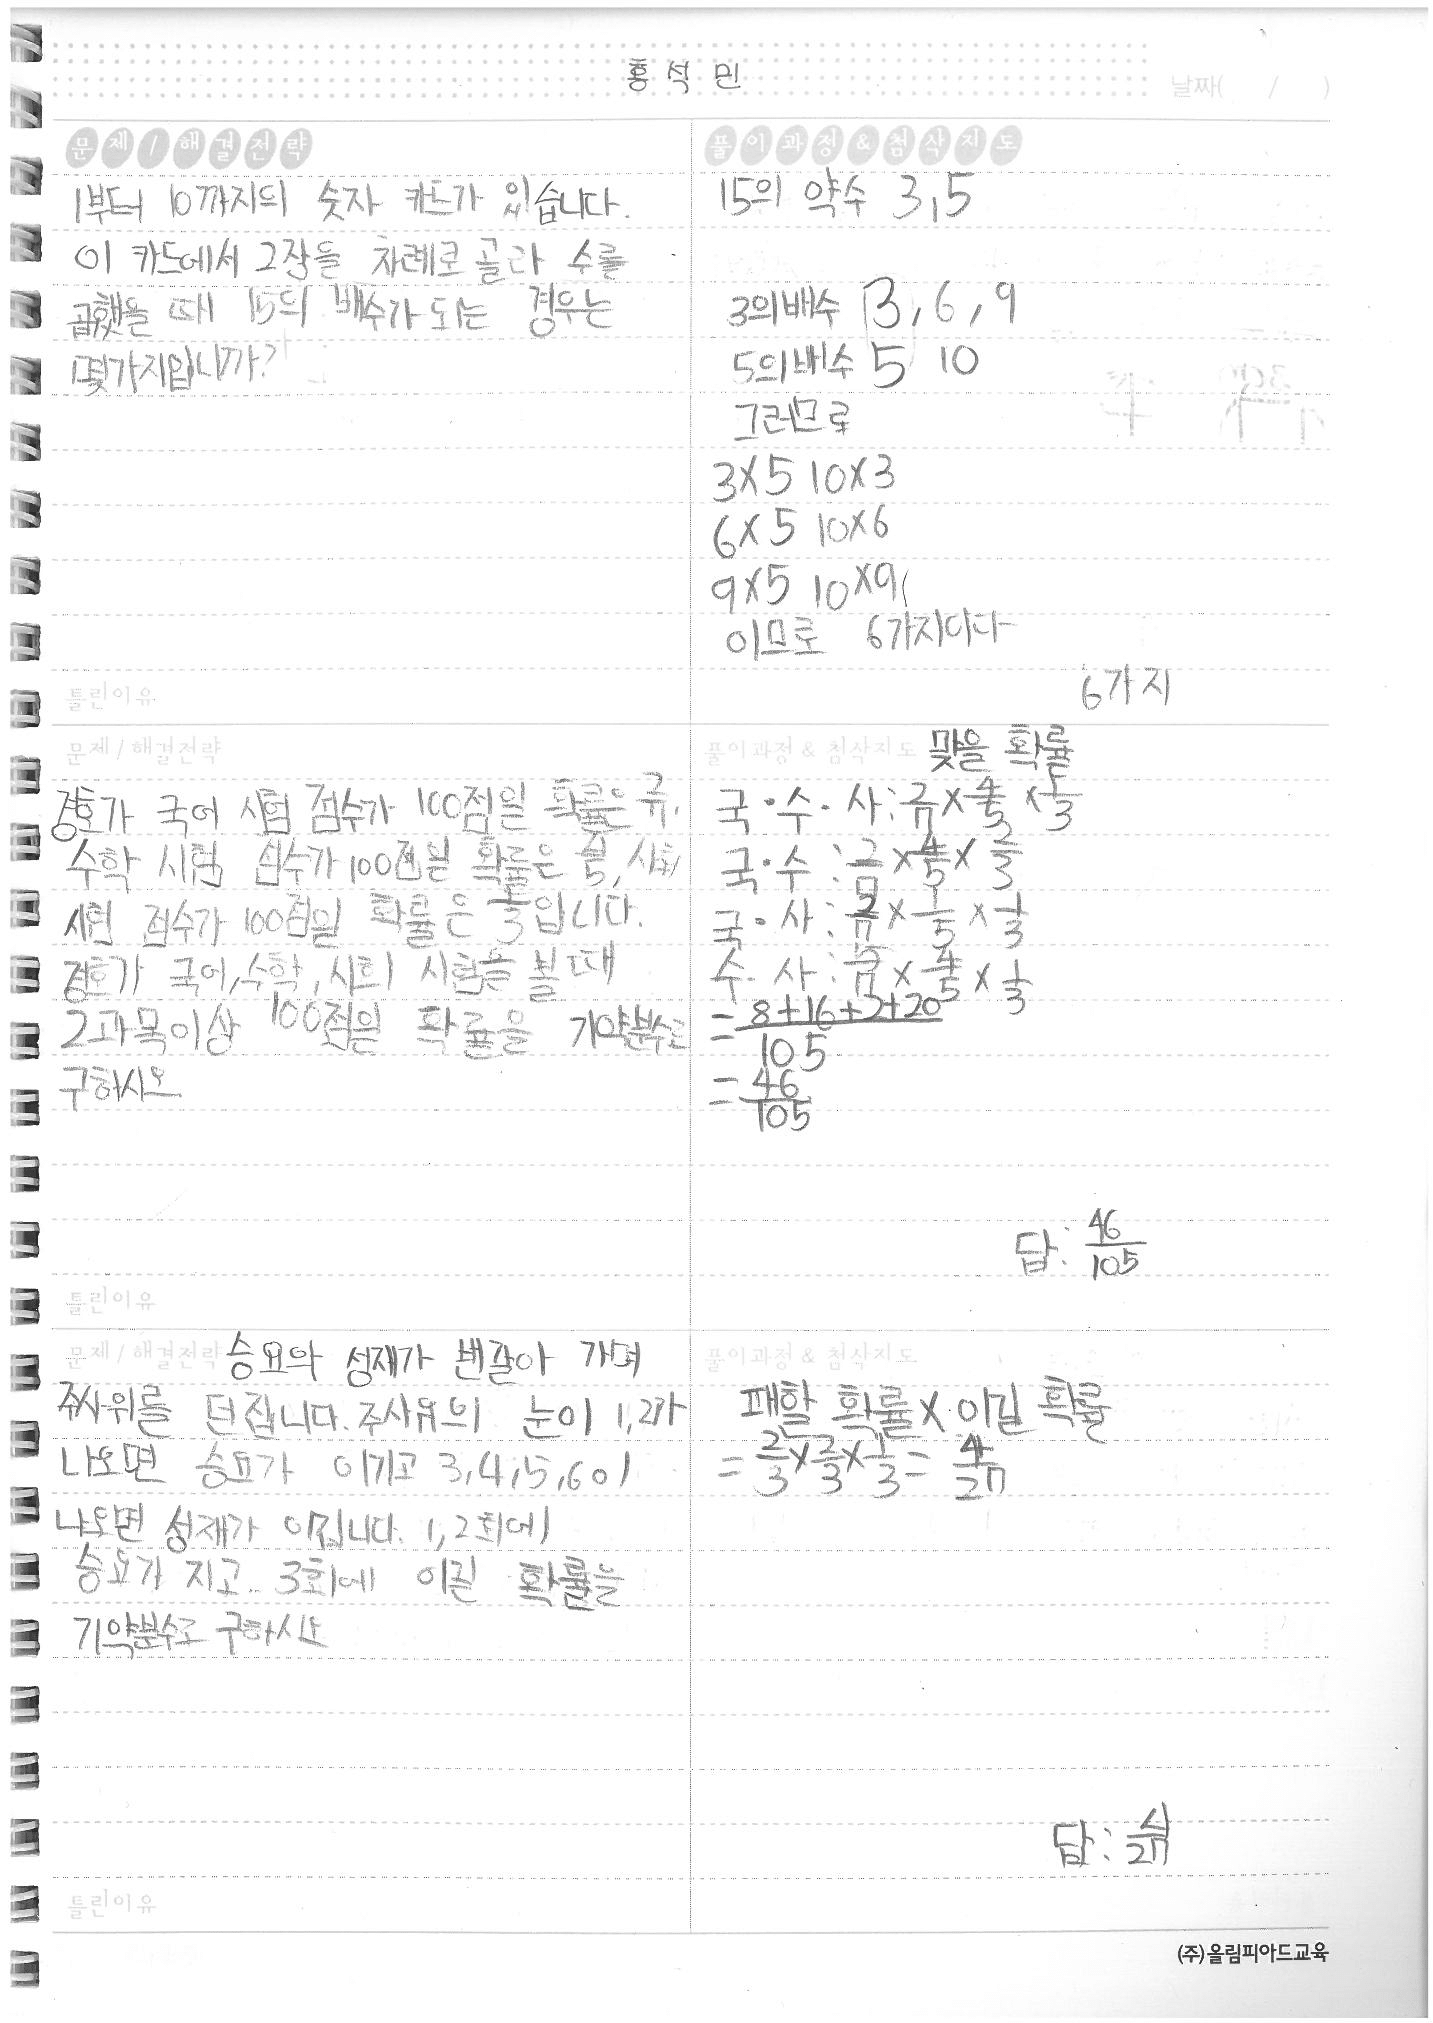 홍석민
날짜( / )
문제/해결전략
1부터 10까지의 숫자 카드가 있습니다.
이 카드에서 2장을 차례로 골라 수를
곱했을 때 15의 배수가 되는 경우는
몇가지입니까?
틀린이유
풀이과정&첨삭지도
15의 약수 3,5
3의배수 3, 6, 9
5의배수 5 10
그러므로
3×5 10×3
6×5 10×6
9×5 10×9
이므로 6가지이다
6가지
문제/해결전략
경호가 국어 시험 점수가 100점일 확률은 2/7,
수학 시험 점수가 100점일 확률은 4/5, 사회
시험 점수가 100점일 확률은 1/3입니다.
경호가 국어,수학,사회 시험을 볼 때
2과목이상 100점일 확률을 기약분수로
구하시오
틀린이유
풀이과정 & 첨삭지도 맞을 확률
국·수·사: 2/7 × 4/5 × 1/3
국·수: 2/7 × 4/5 × 2/3
국·사: 2/7 × 1/5 × 1/3
수·사: 5/7 × 4/5 × 1/3
= 8+16+2+20/105
= 46/105
답: 46/105
문제/해결전략 승요와 성재가 번갈아 가며
주사위를 던집니다. 주사위의 눈이 1,2가
나오면 승요가 이기고 3,4,5,6이
나오면 성재가 이깁니다. 1,2회에
승요가 지고 3회에 이길 확률을
기약분수로 구하시오
틀린이유
풀이과정 & 첨삭지도
패할 확률 × 이길 확률
= 2/3 × 2/3 × 1/3 = 4/27
답: 4/27
(주)올림피아드교육